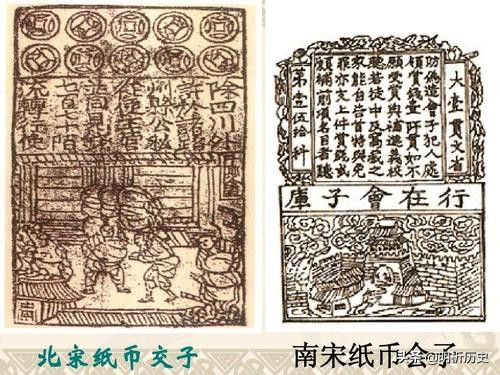 除四川外
許於諸路
州縣公私
從便主管
並同見錢
七百七十陌
流轉行使
大壹貫文省
偽造會子犯人處
賞錢壹阡貫如不
願受賞與補進義校
若徒中及窩藏之
家能自告首特與免
罪亦支上件賞錢或
願補前項名目者聽
行在會子庫
北宋纸币交子
南宋纸币会子
头条@明析历史